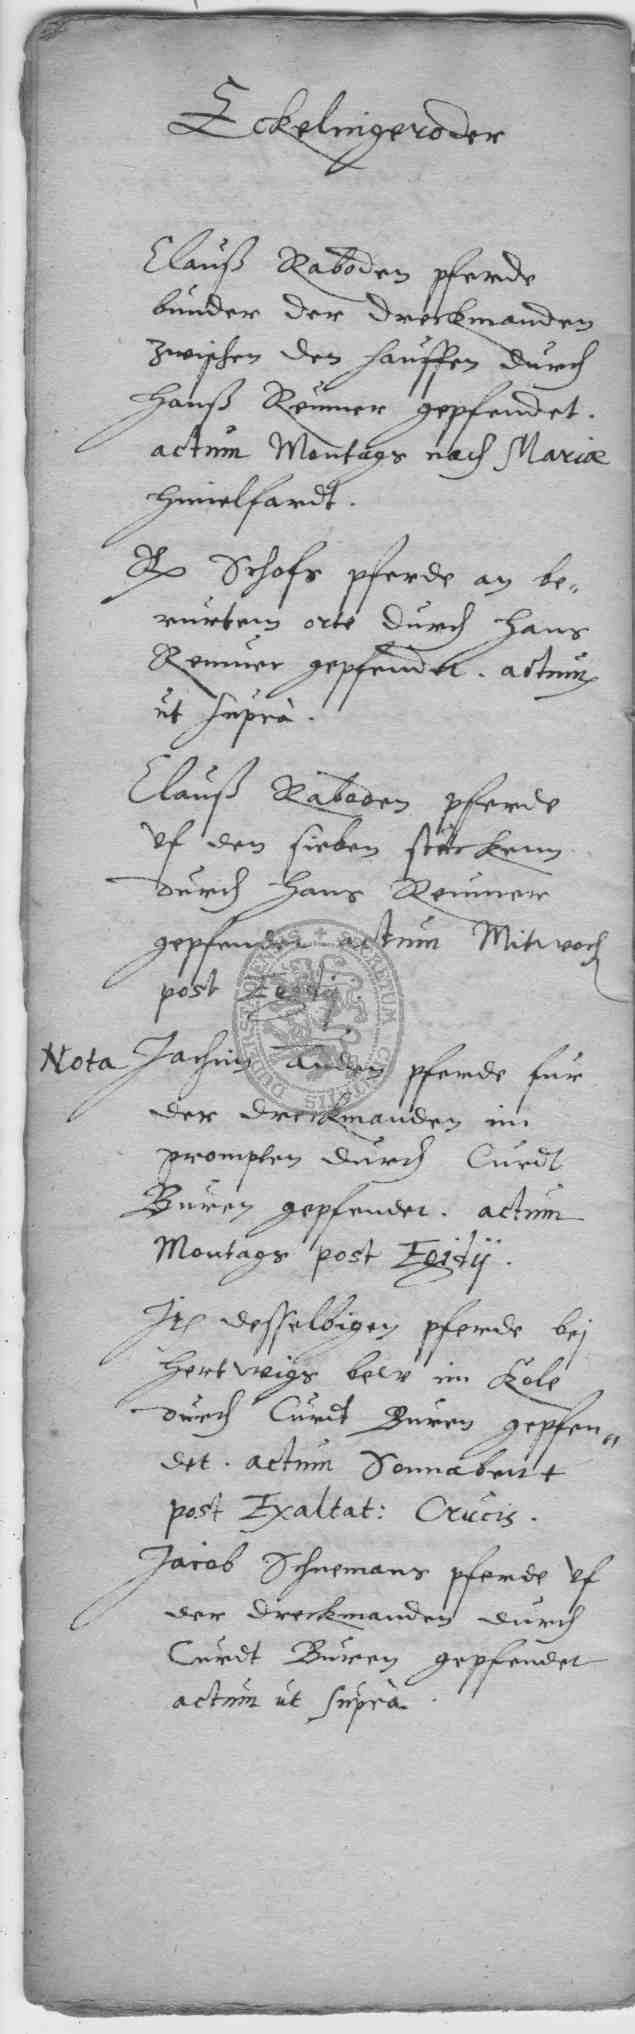 Eckelingeroder
Clauß Raboden pferde
bunder der Dreckmanden
zwischen den hauffen durch
Hanß Römer gepfendet.
actum Montags nach Mariæ
Himelfardt.
Schofs pferde an be„
rurtem orte durch Hans
Römer gepfendet. actum
ut supra.
Clauß Raboden pferde
uf den sieben stückenn
durch Hans Römer
gepfendet actum Mitwoch
post Egidij.
Nota Jachim pferde für
der Dreckmanden im
prompten durch Curdt
Buren gepfendet. actum
Montags post Egidij.
It desselbigen pferde bej
Hertwigs im Kole
durch Curdt Buren gepfen„
det. actum Sonnabent
post Exaltat: Crucis.
Jacob Schnemans pferde uf
der Dreckmanden durch
Curdt Buren gepfendet
actum ut supra.